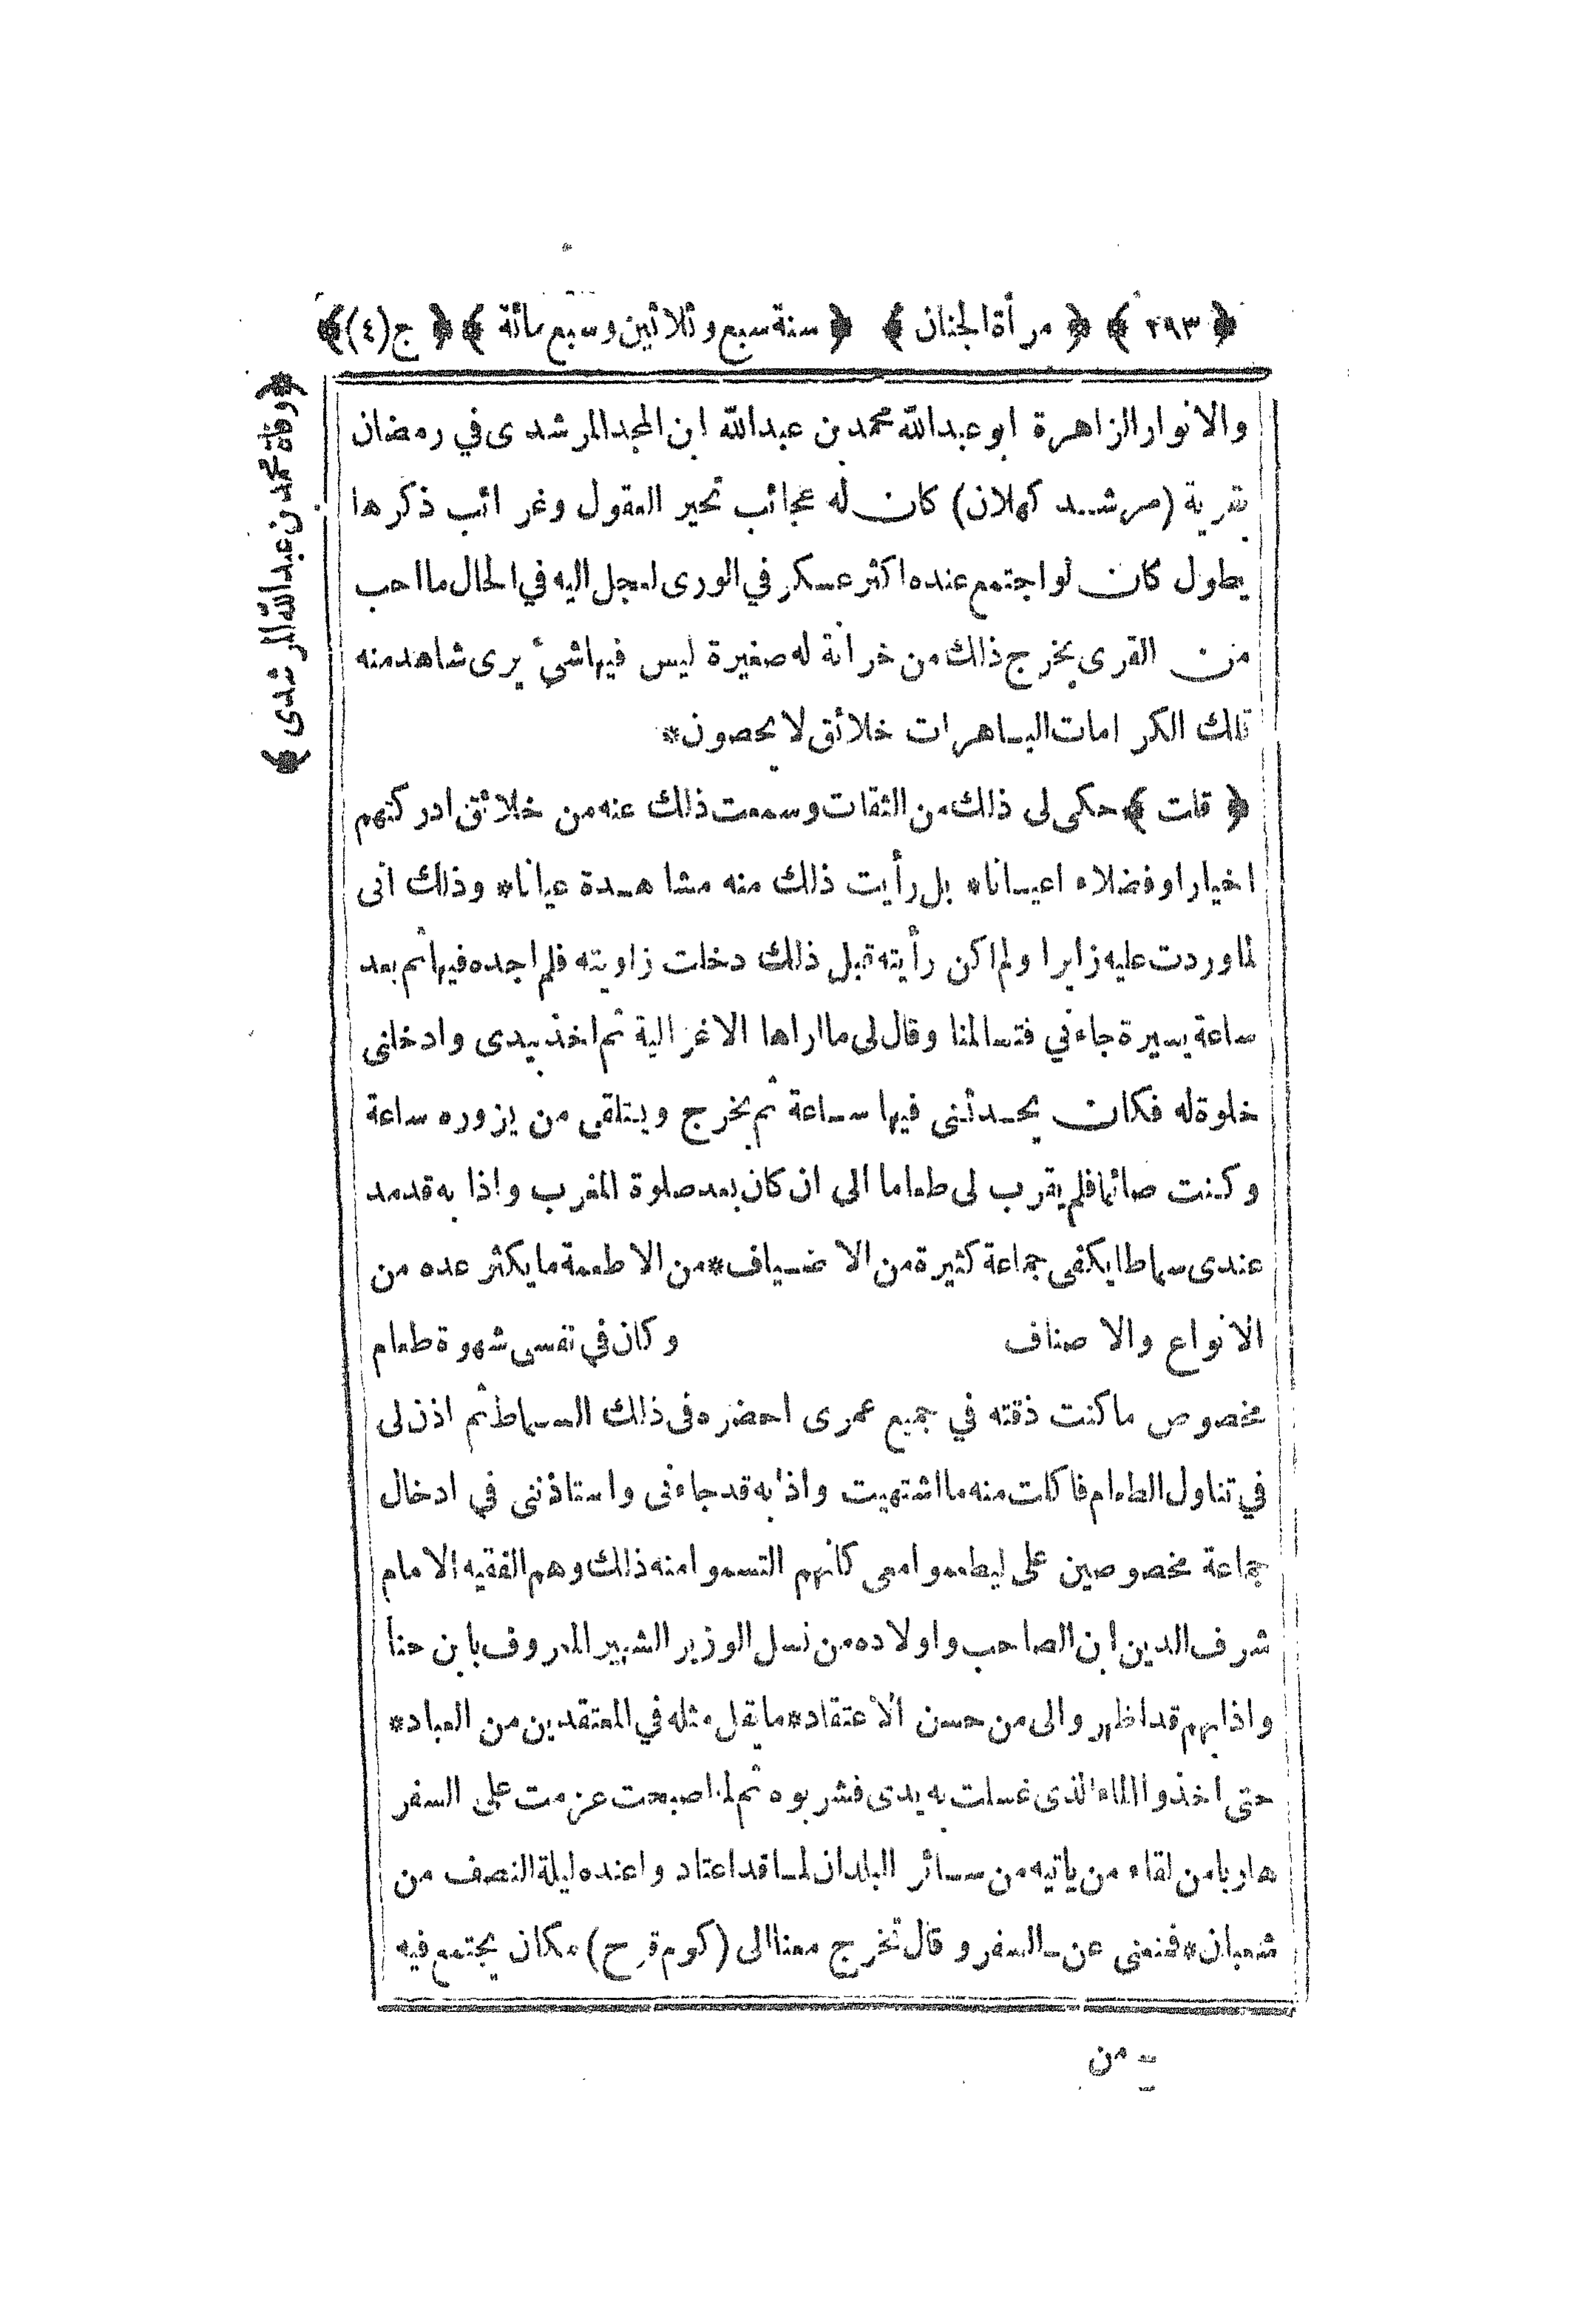 ﴿ ٢٩٣ ﴾ ﴿ مرأة الجنان ﴾ ﴿ سنة سبع وثلاثين وسبع مائة ﴾ ﴿ ج (٤) ﴾
﴿ وفاة محمد بن عبدالله المرشدى ﴾
والانوار الزاهرة ابو عبدالله محمد بن عبدالله ابن المجد المرشدى في رمضان
بقرية (مرشد كهلان) كان له عجائب تحير العقول وغرائب ذكرها
يطول كان لو اجتمع عنده اكثر عسكر في الورى لعجل اليه في الحال ما احب
من القرى يخرج ذلك من خزانة له صغيرة ليس فيها شئ يرى شاهد منه
تلك الكرامات الباهرات خلائق لا يحصون*
﴿ قلت ﴾ حكى لى ذلك من الثقات وسمعت ذلك عنه من خلائق ادركتهم
اخيارا وفضلاء اعيانا* بل رأيت ذلك منه مشاهدة عيانا* وذلك انى
لما وردت عليه زايرا ولم اكن رأيته قبل ذلك دخلت زاويته فلم اجده فيها ثم بعد
ساعة يسيرة جاءني فتسالمنا وقال لى ما اراها الا غزالية ثم اخذ بيدى وادخلنى
خلوة له فكان يحدثنى فيها ساعة ثم يخرج ويتلقى من يزوره ساعة
وكنت صائما فلم يقرب لى طعاما الى ان كان بعد صلوة المغرب واذا به قدمد
عندى سماطا يكفى جماعة كثيرة من الاضياف* من الاطعمة ما يكثر عده من
الانواع والاصناف وكان في نفسى شهوة طعام
مخصوص ما كنت ذقته في جميع عمرى احضره فى ذلك السماط ثم اذن لى
في تناول الطعام فاكلت منه ما اشتهيت واذا به قد جاءنى واستاذننى في ادخال
جماعة مخصوصين على ليطعموا معى كانهم التمسوا منه ذلك وهم الفقيه الامام
شرف الدين ابن الصاحب واولاده من نسل الوزير الشهير المعروف بابن حنا
واذا بهم قد اظهروا لى من حسن الاعتقاد* ما يقل مثله في المعتقدين من العباد*
حتى اخذوا الماء الذى غسلت به يدى فشربوه ثم لما اصبحت عزمت على السفر
هاربا من لقاء من ياتيه من سائر البلدان لما قد اعتادوا عنده ليلة النصف من
شعبان* فمنعنى عن السفر وقال تخرج معنا الى (كوم فرح) مكان يجتمع فيه
من